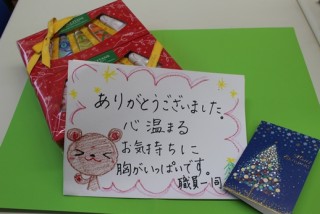 ありがとうございました。
心温まる
お気持ちに
胸がいっぱいです。
職員一同